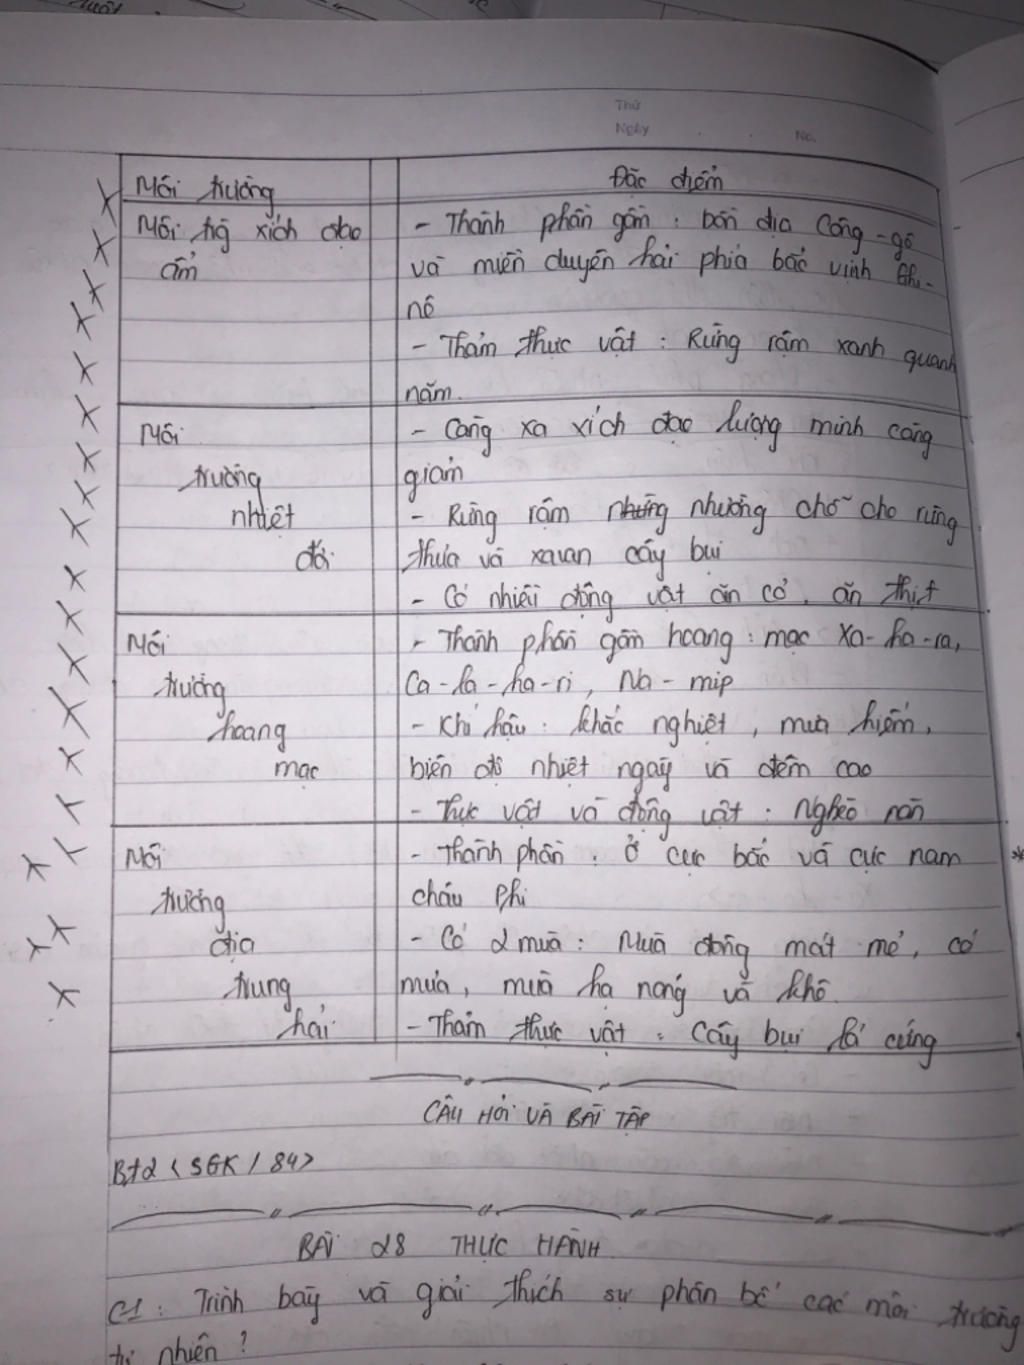 Thứ
Ngày
No.
Môi trường
Đặc điểm
Môi trg xích đạo
ẩm
- Thành phần gồm : bồn địa Công-gô
và miền duyên hải phía bắc vịnh Ghi-
nê
- Thảm thực vật : Rừng rậm xanh quanh
năm.
Môi
trường
nhiệt
đới
- Càng xa xích đạo lượng mình càng
giảm
- Rừng rậm những nhường chỗ cho rừng
thưa và xavan cây bụi
- Có nhiều động vật ăn cỏ, ăn thịt
Môi
trường
hoang
mạc
- Thành phần gồm hoang : mạc Xa-ha-ra,
Ca-la-ha-ri, Na-mip
- Khí hậu : khắc nghiệt, mưa hiếm,
biên độ nhiệt ngày và đêm cao
- Thực vật và động vật : Nghèo nàn
Môi
trường
địa
trung
hải
- Thành phần : ở cực bắc và cực nam
châu Phi
- Có 2 mùa : Mùa đông mát mẻ, có
mưa, mùa hạ nóng và khô.
- Thảm thực vật : Cây bụi lá cứng
CÂU HỎI VÀ BÀI TẬP
Bt2 <SGK / 84>
BÀI 28 THỰC HÀNH
C1 : Trình bày và giải thích sự phân bố các môi trường
tự nhiên ?